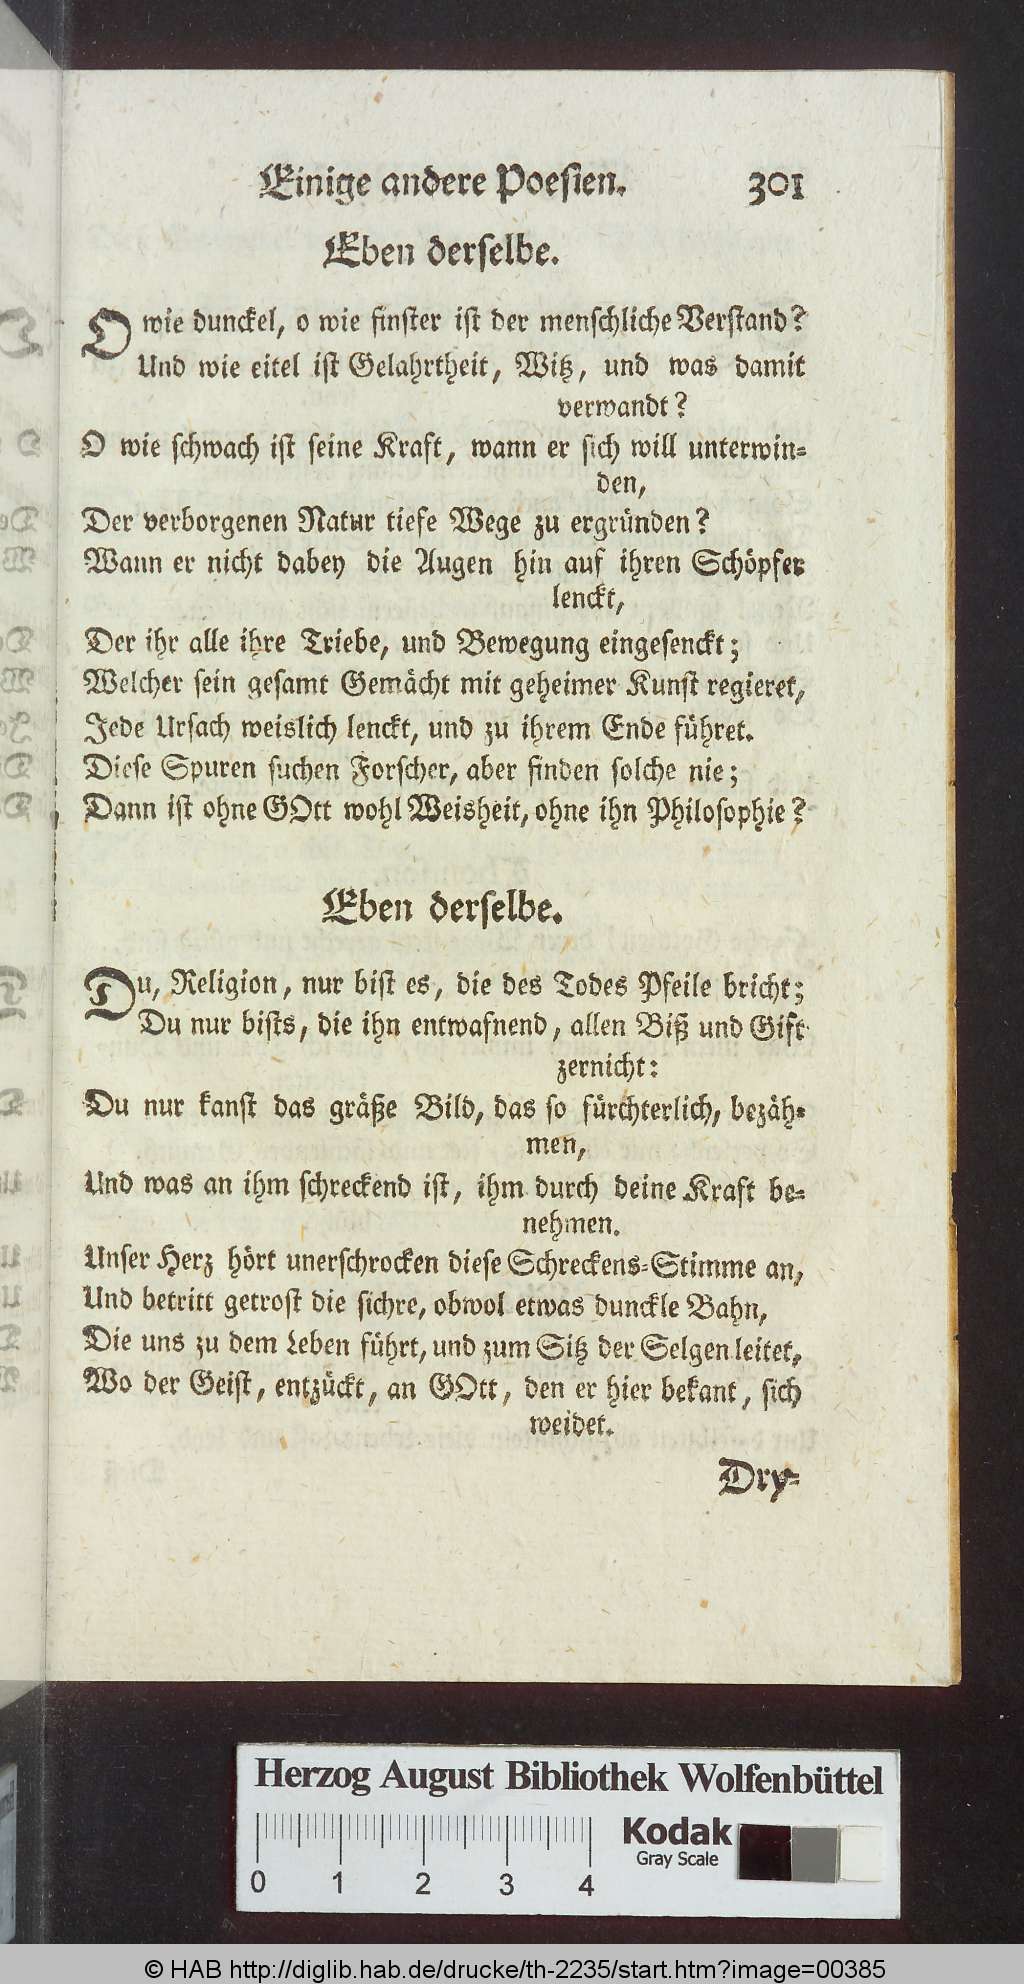 Einige andere Poesien. 301
Eben derselbe.
O wie dunckel, o wie finster ist der menschliche Verstand?
Und wie eitel ist Gelahrtheit, Witz, und was damit
verwandt?
O wie schwach ist seine Kraft, wann er sich will unterwin-
den,
Der verborgenen Natur tiefe Wege zu ergründen?
Wann er nicht dabey die Augen hin auf ihren Schöpfer
lenckt,
Der ihr alle ihre Triebe, und Bewegung eingesenckt;
Welcher sein gesamt Gemächt mit geheimer Kunst regieret,
Jede Ursach weislich lenckt, und zu ihrem Ende führet.
Diese Spuren suchen Forscher, aber finden solche nie;
Dann ist ohne GOtt wohl Weisheit, ohne ihn Philosophie?
Eben derselbe.
Du, Religion, nur bist es, die des Todes Pfeile bricht;
Du nur bists, die ihn entwafnend, allen Biß und Gift
zernicht:
Du nur kanst das gräße Bild, das so fürchterlich, bezäh-
men,
Und was an ihm schreckend ist, ihm durch deine Kraft be-
nehmen.
Unser Herz hört unerschrocken diese Schreckens-Stimme an,
Und betritt getrost die sichre, obwol etwas dunckle Bahn,
Die uns zu dem Leben führt, und zum Sitz der Selgen leitet,
Wo der Geist, entzückt, an GOtt, den er hier bekant, sich
weidet.
Dry-
Herzog August Bibliothek Wolfenbüttel
Kodak
Gray Scale
0 1 2 3 4
© HAB http://diglib.hab.de/drucke/th-2235/start.htm?image=00385